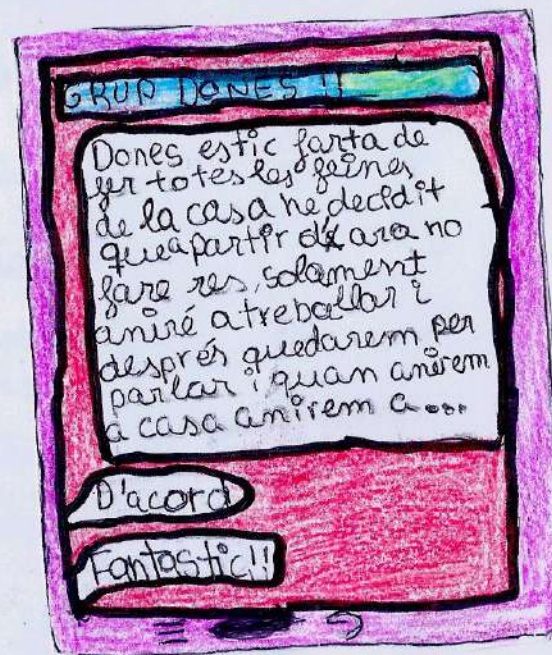 GRUP DONES !!
Dones estic farta de
fer totes les feines
de la casa he decidit
que apartir d'ara no
fare res, solament
aniré a treballar i
després quedarem per
parlar i quan anirem
a casa anirem a...
D'acord
Fantastic!!